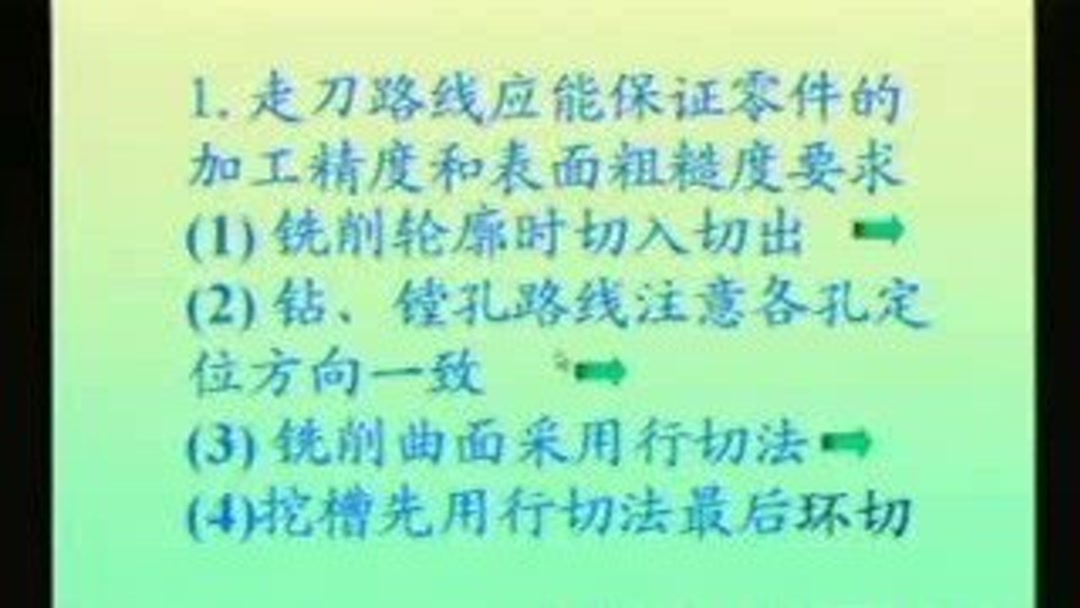 1.走刀路线应能保证零件的
加工精度和表面粗糙度要求
(1)铣削轮廓时切入切出
(2)钻、镗孔路线注意各孔定
位方向一致
(3)铣削曲面采用行切法
(4)挖槽先用行切法最后环切